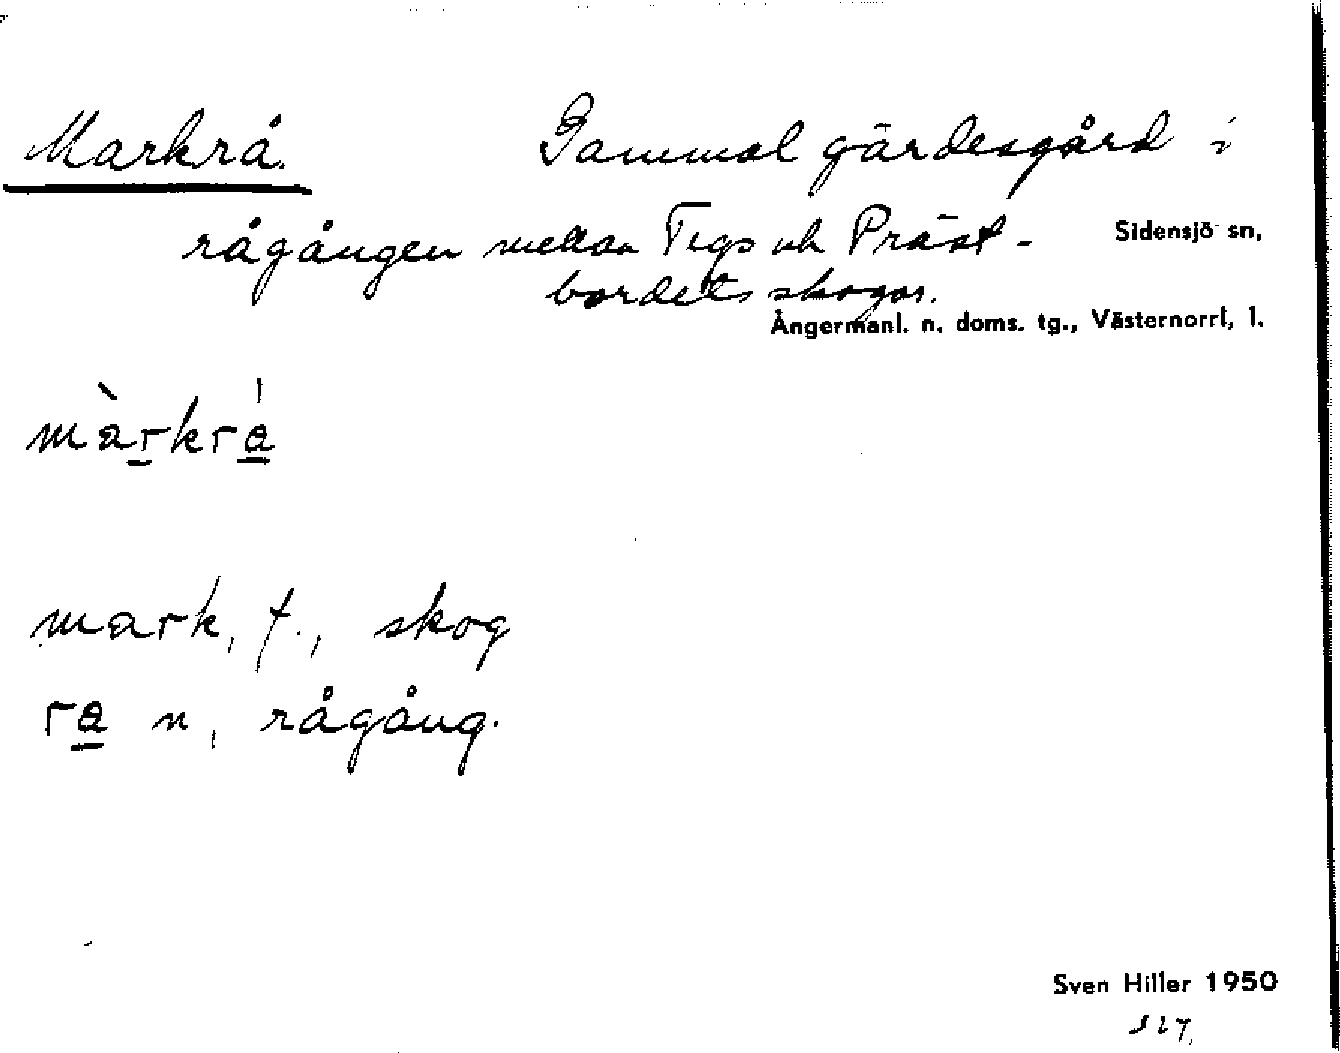 Markrå. Gammal gärdesgård i
rågången mellan Tegs och Präst-
Sidensjö sn,
bordets skogar.
Ångermanl. n. doms. tg., Västernorrl, l.
màrkrá
mark, f., skog
ra n, rågång.
Sven Hiller 1950